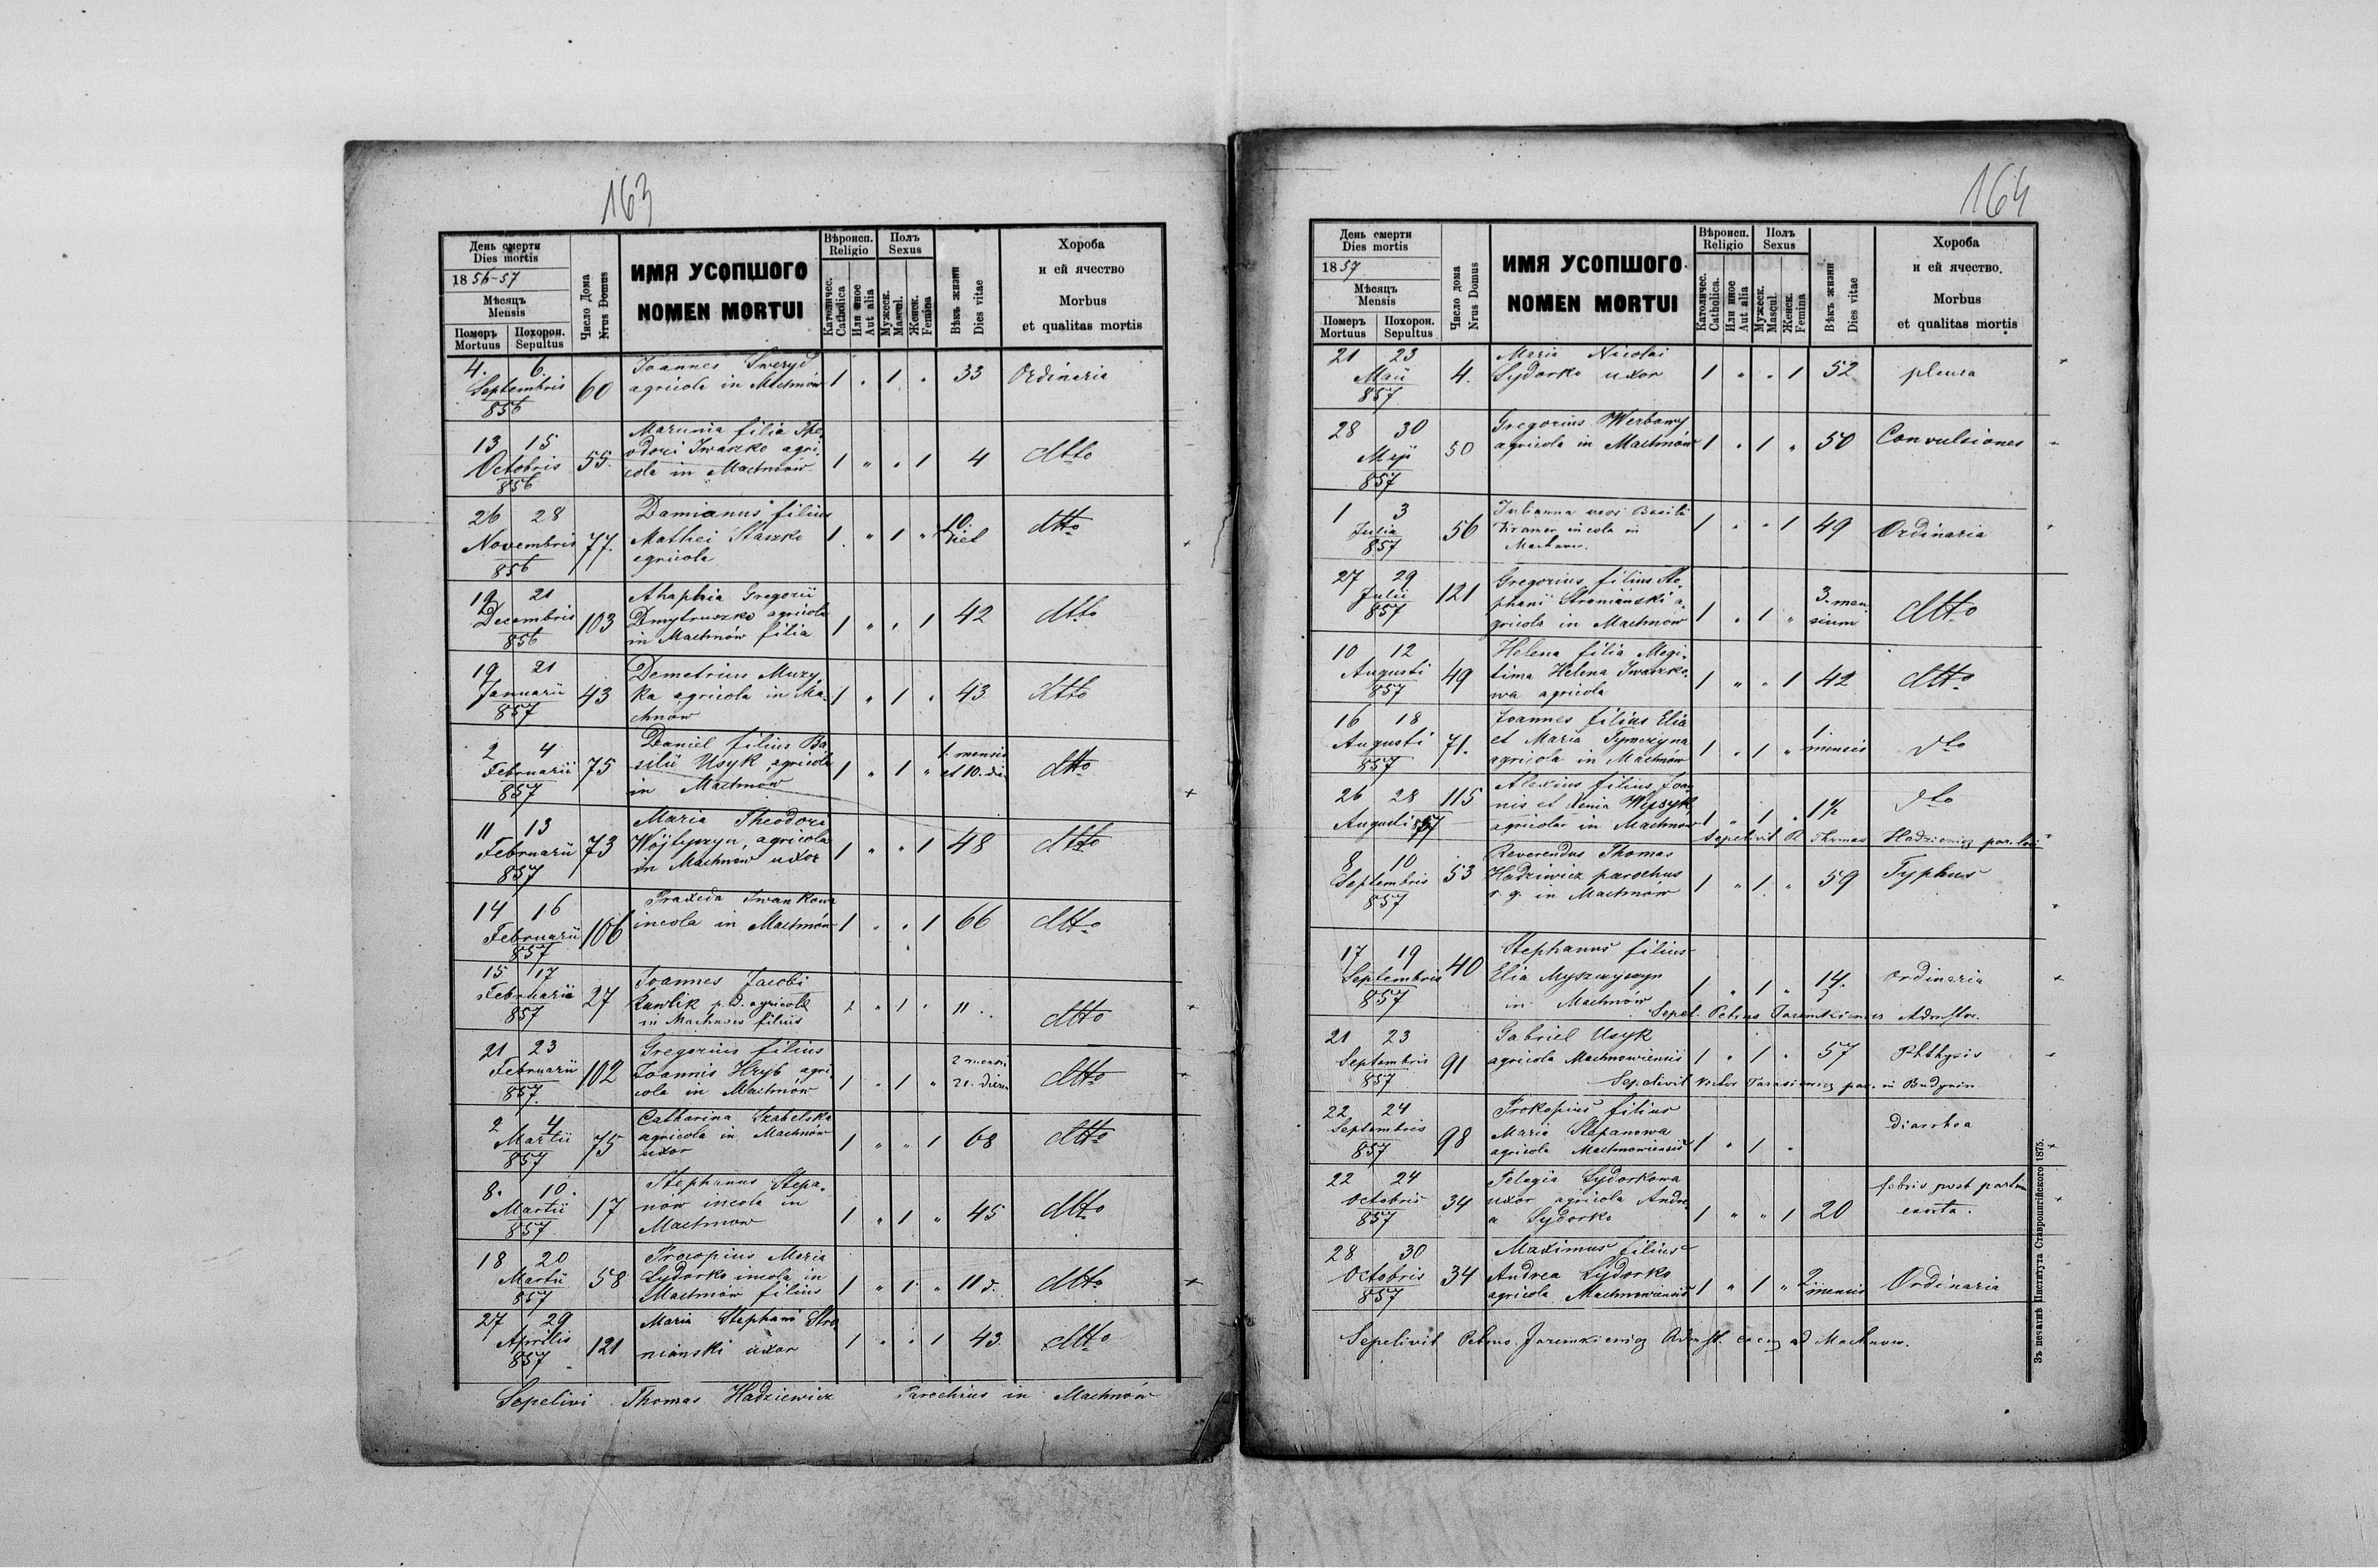 163
День смерти
Dies mortis
1856-57
Мѣсяць
Mensis
Померъ
Mortuus
Похорон.
Sepultus
Число Дома
Nrus Domus
ИМЯ УСОПШОГО
NOMEN MORTUI
Вѣроисп.
Religio
Католичес.
Catholica
Или иное
Aut alia
Полъ
Sexus
Мужеск.
Mascul.
Женск.
Femina
Вѣкъ жизни
Dies vitae
Хороба
и ей ячество
Morbus
et qualitas mortis
4. 6. Septembris 856 60
Joannes Sweryd
agricola in Machnów 1 " 1 " 33 Ordinaria
13 15 Octobris 856 55.
Marunia filia The-
odori Iwaszko agri-
cola in Machnów 1 " " 1 4 dtto
26 28 Novembris 856 77.
Damianus filius
Mathei Staszko
agricola 1 " 1 " 10. diet dtto
19 21 Decembris 856 103
Ahaphia Gregorii
Dmytruszko agricola
in Machnów filia 1 " " 1 42 dtto
19 21 Januarii 857 43
Demetrius Muzy-
ka agricola in Ma-
chnów 1 " 1 " 43 dtto
2 4 Februarii 857 75
Daniel filius Ba-
silii Usyk, agricola
in Machnów 1 " 1 " 1. mensis et 10. die dtto
11 13 Februarii 857 73
Maria Theodori
Wójtyszyn, agricola
in Machnow uxor 1 " " 1 48 dtto
14 16 Februarii 857 106
Praxeda Iwankowa
incola in Machnów 1 " " 1 66 dtto
15 17 Februarii 857 27
Joannes Jacobi
p.d. agricola
in Machnow filius 1 " 1 " 11 dtto
21 23 Februarii 857 102
Gregorius filius
Joannis Hryb agri-
cola in Machnów 1 " 1 " 2 mensi 21. dierum dtto
2 4 Martii 857 75
Catharina Szabelska
agricola in Machnów
uxor 1 " " 1 68 dtto
8. 10. Martii 857 17
Stephanus Stepa-
now incola in
Machnow 1 " 1 " 45 dtto
18 20 Martii 857 58
Procopius Maria
Sydorko incola in
Machnów filius 1 " 1 " 11 d. dtto
27 29 Aprilis 857 121
Maria Stephani Stro-
nianski uxor 1 " " 1 43. dtto
Sepelivi Thomas Hadziewicz Parochus in Machnów
164
День смерти
Dies mortis
1857
Мѣсяць
Mensis
Померъ
Mortuus
Похорон.
Sepultus
Число дома
Nrus Domus
ИМЯ УСОПШОГО
NOMEN MORTUI
Вѣроисп.
Religio
Католичес.
Catholica.
Или иное
Aut alia
Полъ
Sexus
Мужеск.
Mascul.
Женск.
Femina
Вѣкъ жизни
Dies vitae
Хороба
и ей ячество.
Morbus
et qualitas mortis
21 23 Maii 857 4.
Maria Nicolai
Sydorko uxor 1 " " 1 52 pleura
28 30 Maji 857 50
Gregorius Werbowy
agricola in Machnów 1 " 1 " 50 Convulsiones
1 3 Julia 857 56
Julianna uxor Basili
Kramer incola in
Machnow. 1 " " 1 49 Ordinaria
27 29 Julii 857 121
Gregorius filius Ste-
phani Stronianski a-
gricola in Machnow 1 " 1 " 3. mensium dtto
10 12 Augusti 857 49
Helena filia
Helena Iwaszko-
wa agricola 1 " " 1 42 dtto
16 18 Augusti 857 71.
Joannes filius Elia
et Maria
agricola in Machnów 1 " 1 " 1. mensis dto
26 28 Augusti 857 115
Alexius filius Joan-
nis et Xenia
agricola in Machnow 1 " 1 " 1½ dto
Sepelivit R. Thomas Hadziewicz par. loci
8 10 Septembris 857 53
Reverendus Thomas
Hadziwicz parochus
r. g. in Machnów 1 " 1 " 59 Typhus
17 19 Septembris 857 40
Stephanus filius
Elia Myszczyszyn
in Machnów 1 " 1 " 14. Ordinaria
Sepel. Petrus Jaremkiewicz Admstor.
21 23 Septembris 857 91
Gabriel Usyk
agricola Machnowiensis 1 " 1 " 57 Phthysis
Sepelivit Victor Tarasiewicz par. in Budynin
22 24 Septembris 857 98
Prokopius filius
Maria Stepanowa
agricola Machnowiensis 1 " 1 " diarrhea
22 24 Octobris 857 34
Pelagia Sydorkowa
uxor agricola Andre-
a Sydorko 1 " " 1 20 febris post partum exorta.
28 30 Octobris 857 34
Maximus filius
Andrea Sydorko
agricola Machnowiensis 1 " 1 " 2 mensis Ordinaria
Sepelivit Petrus Jaremkiewicz Admst. ad Machnow.
Зъ печатнѣ Института Ставропигійского 1875.